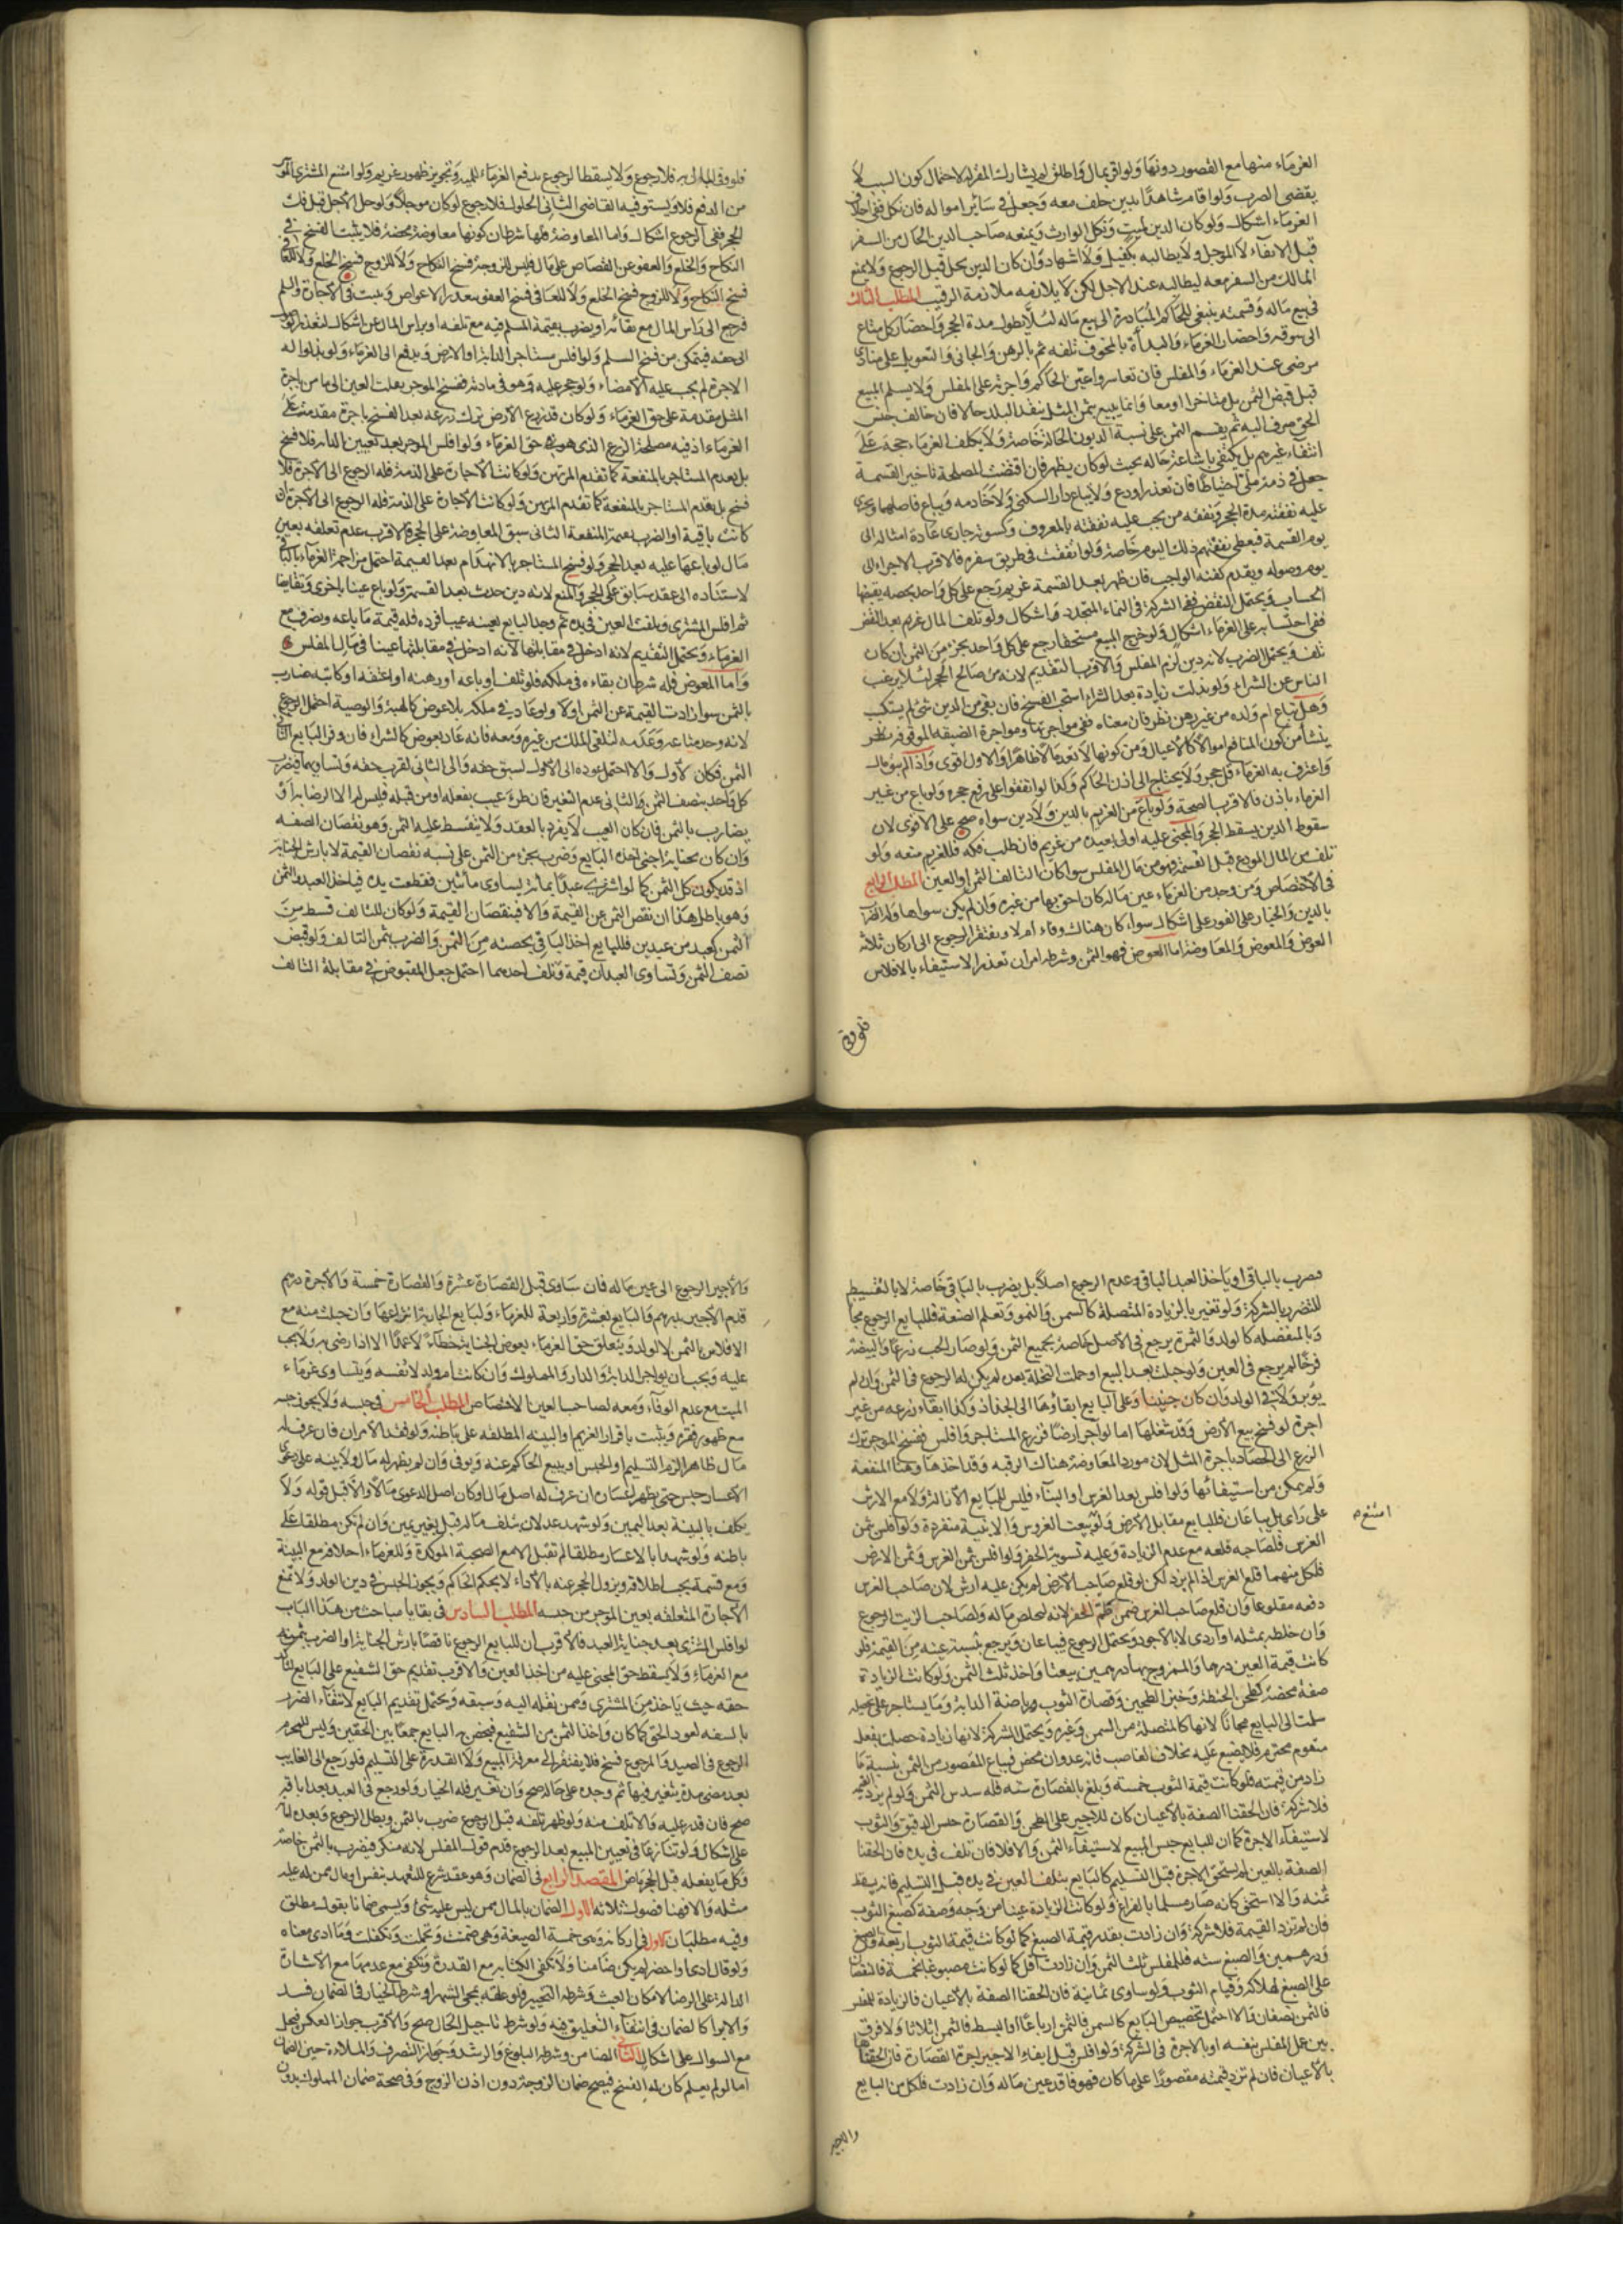 الغرماء منها مع القصور دونها ولو اقر بمال واطلق لم يشارك المقر له لاحتمال كون السبب لا
يقتضى الضرب ولو اقام شاهدا بدين حلف معه وجعل فى سائر امواله فان نكل ففى احلاف
الغرماء اشكال ولو كان الدين لميت ونكل الوارث ويمنعه صاحب الدين الحال من السفر
قبل الايفاء لا المؤجل ولا يطالبه بكفيل ولا اشهاد وان كان الدين يحل قبل الرجوع ولا يمنع
المالك من السفر معه ليطالبه عند الاجل لكن لا يلازمه ملازمة الرقيب المطلب الثالث
فى بيع ماله وقسمته ينبغى للحاكم المبادرة الى بيع ماله لئلا يطول مدة الحجر واحضار كل متاع
الى سوقه واحضار الغرماء والبدأة بالمخوف تلفه ثم بالرهن والجانى والتعويل على مناد
مرضى عند الغرماء والمفلس فان تعاسروا عين الحاكم واجرته على المفلس ولا يسلم المبيع
قبل قبض الثمن بل متاخرا او معا وانما يبيع بثمن المثل بنقد البلد حالا فان خالف جنس
الحق صرف اليه ثم يقسم الثمن على نسبة الديون الحالة خاصة ولا يكلف الغرماء حجة على
انتفاء غيرهم بل يكتفى باشاعة حاله بحيث لو كان لظهر فان اقتضت المصلحة تاخير القسمة
جعل فى ذمة ملى احتياطا فان تعذر اودع ولا يباع دار السكنى ولا خادمه ويباع فاضلهما ويجرى
عليه نفقته مدة الحجر ونفقة من يجب عليه نفقته بالمعروف وكسوته جارى عادة امثاله الى
يوم القسمة فيعطى نفقتهم ذلك اليوم خاصة ولو اتفقت فى طريق سفره فالاقرب الاجراء الى
يوم وصوله ويقدم كفنه الواجب فان ظهر بعد القسمة غريم رجع على كل واحد بحصة يقتضيها
الحساب ويحتمل النقض ففى الشركة فى النماء المتجدد اشكال ولو تلف المال بعد النقض
ففى احتسابه على الغرماء اشكال ولو خرج المبيع مستحقا رجع على كل واحد بجزء من الثمن ان كان
تلف ويحتمل الضرب لانه دين لزم المفلس والاقرب التقديم لانه من صالح الحجر لئلا يرغب
الناس عن الشراء ولو بذلت زيادة بعد الشراء استحب الفسخ فان بقى من الدين شئ لم يستكسب
وهل تباع ام ولده من غير رهن نظر فان منعناه ففى مواجرتها ومواجرة الضيعة الموقوفة نظر
ينشا من كون المنافع اموالا كالاعيان ومن كونها لا تعد مالا ظاهرا والاول اقوى واذا لم يبق مال
واعترف به الغرماء فك حجره ولا يحتاج الى اذن الحاكم وكذا لو اتفقوا على رفع حجره ولو باع من غير
الغرماء باذن فالاقرب الصحة ولو باع من الغريم بالدين ولا دين سواه صح على الاقوى لان
سقوط الدين يسقط الحجر والمجنى عليه اولى بعبده من غريم فان طلب فكه فللغريم منعه ولو
تلف من المال المودع قبل القسمة فهو من مال المفلس سواء كان التالف الثمن او العين المطلب الرابع
فى الاختصاص ومن وجد من الغرماء عين ماله كان احق بها من غيره وان لم يكن سواها وله الضرب
بالدين والخيار على الفور على اشكال سواء كان هناك وفاء ام لا ويفتقر الرجوع الى اركان ثلاثة
العوض والمعوض والمعاوضة اما العوض فهو الثمن وشرطه امران تعذر الاستيفاء بالافلاس
فلو وفى
فلو وفى المال به فلا رجوع ولا يسقط الرجوع بدفع الغرماء للمنة وتجويز ظهور غريم ولو امتنع المشترى الموسر
من الدفع فلا ويستوفيه القاضى الثانى الحلول فلا رجوع لو كان موجلا ولو حل الاجل قبل فك
الحجر ففى الرجوع اشكال واما المعاوضة فلها شرطان كونها معاوضة محضة فلا يثبت الفسخ فى
النكاح والخلع والعفو عن القصاص على مال فليس للزوجة فسخ النكاح ولا للزوج فسخ الخلع ولا للعافى
فسخ النكاح ولا للزوج فسخ الخلع ولا للعافى فسخ العفو بتعذر الاعواض ويثبت فى الاجارة والسلم
فيرجع الى راس المال مع بقائه او يضرب بقيمة المسلم فيه مع تلفه او براس المال على اشكال لتعذر الوصول
الى حقه فيتمكن من فسخ السلم ولو افلس مستاجر الدابة او الارض ويدفع الى الغرماء ولو بذلوا له
الاجرة لم يجب عليه الامضاء ولو حجر عليه وهو فى بادية ففسخ الموجر نقلت العين الى مامن باجرة
المثل مقدمة على حق الغرماء ولو كان قد زرع الارض ترك زرعه بعد الفسخ باجرة مقدمة على
الغرماء اذ فيه مصلحة الزرع الذى هو فى حق الغرماء ولو افلس الموجر بعد تعيين الدابة فلا فسخ
بل يقدم المستاجر بالمنفعة كما تقدم المرتهن ولو كانت الاجارة على الذمة فله الرجوع الى الاجرة فلا
فسخ بل يقدم المستاجر بالمنفعة كما تقدم المرتهن ولو كانت الاجارة على الذمة فله الرجوع الى الاجرة ان
كانت باقية او الضرب بقيمة المنفعة الثانى سبق المعاوضة على الحجر فالاقرب عدم تعلقه بعين
مال لو باعها عليه بعد الحجر ولو فسخ المستاجر بالانهدام بعد القسمة احتمل مزاحمة الغرماء بالباقى
لاستناده الى عقد سابق على الحجر والمنع لانه دين حدث بعد القسمة ولو باع عينا باخرى وتقابضا
ثم افلس المشترى وتلفت العين فى يده ثم وجد البايع بعينه عيبا فرده فله قيمة ما باعه ويضرب مع
الغرماء ويحتمل التقديم لانه ادخل فى مقابلتها لانه ادخل فى مقابلتها عينا فى مال المفلس
واما المعوض فله شرطان بقاءه فى ملكه فلو تلف او باعه او رهنه او اعتقه او كاتبه ضارب
بالثمن سواء زادت القيمة عن الثمن او لا ولو عاد فى ملكه بلا عوض كالهبة والوصية احتمل الرجوع
لانه وجد متاعه وعدمه لتلقى الملك من غيره ومعه فانه عاد بعوض كالشراء فان وفر البايع الثانى
الثمن فكان كالاول والا احتمل عوده الى الاول لسبق حقه والى الثانى لقرب حقه وتساويهما فيضرب
كل واحد بنصف الثمن والثانى عدم التغير فان طرء عيب بفعله او من قبله فليس له الا الرضا به او
يضارب بالثمن فان كان العيب لا يفرد بالعقد ولا يتقسط عليه الثمن وهو نقصان الصفة
وان كان بجناية اجنبى اخذه البايع وضرب بجزء من الثمن على نسبة نقصان القيمة لا بارش الجناية
اذ قد يكون كل الثمن كما لو اشترى عبدا بمأة يساوى مأتين فقطعت يده فياخذ العبد والثمن
وهو باطل هذا ان نقص الثمن عن القيمة والا فبنقصان القيمة ولو كان للتالف قسط من
الثمن كعبد من عبدين فللبايع اخذ الباقى بحصته من الثمن والضرب بثمن التالف ولو قبض
نصف الثمن وتساوى العبدان قيمة وتلف احدهما احتمل جعل المقبوض فى مقابلة التالف
فيضرب بالباقى او ياخذ العبد الباقى وعدم الرجوع اصلا بل يضرب بالباقى خاصة لا بالتقسيط
للتضرر بالشركة ولو تغير بالزيادة المتصلة كالسمن والنمو وتعلم الصنعة فللبايع الرجوع مجانا
وبالمنفصلة كالولد والثمرة يرجع فى الاصل خاصة بجميع الثمن ولو صار الحب زرعا والبيضة
فرخا لم يرجع فى العين ولو حبلت بعد البيع او حملت النخلة بعده لم يكن له الرجوع فى الثمن وان لم
يؤبر ولا فى الولد وان كان جنينا وعلى البايع ابقاؤها الى الجذاذ وكذا ابقاء زرعه من غير
اجرة لو فسخ بيع الارض وقد شغلها اما لو آجر ارضا فزرع المستاجر وافلس ففسخ الموجر ترك
الزرع الى الحصاد باجرة المثل لان مورد المعاوضة هناك الرقبة وقد اخذها وهنا المنفعة
ولم يمكن من استيفائها ولو افلس بعد الغرس او البناء فليس للبايع الازالة ولا مع الارش
على راى بل يباعان فللبايع مقابل الارض ولو بيعت الغروس والابنية منفردة ولو افلس بثمن
امتنع ص
الغرس فلصاحبه قلعه مع عدم الزيادة وعليه تسوية الحفر ولو افلس بثمن الغرس وثمن الارض
فلكل منهما قلع الغرس اذا لم يزد لكن لو قلع صاحب الارض لم يكن عليه ارش لان صاحب الغرس
دفعه مقلوعا وان قلع صاحب الغرس ضمن طم الحفر لانه لتخلص ماله ولصاحب الزيت الرجوع
وان خلطه بمثله او اردى لا بالاجود ويحتمل الرجوع فيباعان ويرجع بنسبة عينه من القيمة فلو
كانت قيمة العين درهما والممزوج بها درهمين بيعتا واخذ ثلث الثمن ولو كانت الزيادة
صفة محضة كطحن الحنطة وخبز الطحين وقصارة الثوب ورياضة الدابة وما يستاجر على تحصيله
سلمت الى البايع مجانا لانها كالمتصلة من السمن وغيره ويحتمل الشركة لانها زيادة حصلت بفعل
متقوم محترم فلا يضيع عليه بخلاف الغاصب فانه عدوان محض فيباع المقصور من الثمن بنسبة ما
زاد من قيمته فلو كانت قيمة الثوب خمسة وبلغ بالقصارة ستة فله سدس الثمن ولو لم يزد القيمة
فلا شركة فان الحقنا الصفة بالاعيان كان للاجير على الطحن والقصارة حبس الدقيق والثوب
لاستيفاء الاجرة كما ان للبايع حبس المبيع لاستيفاء الثمن والا فلا فان تلف فى يده فان الحقنا
الصفة بالعين لم يستحق الاجرة قبل التسليم كالبايع بتلف العين فى يده قبل التسليم فانه يسقط
ثمنه والا استحق كانه صار مسلما بالفراغ ولو كانت الزيادة عينا من وجه وصفة كصبغ الثوب
فان لم تزد القيمة فلا شركة وان زادت بقدر قيمة الصبغ كما لو كانت قيمة الثوب اربعة والصبغ
درهمين والصبغ ستة فللمفلس ثلث الثمن وان زادت اقل كما لو كانت مصبوغا بخمسة فالنقصان
على الصبغ لهلاكه وقيام الثوب ولو ساوى ثمانية فان الحقنا الصفة بالاعيان فالزيادة للمفلس
فالثمن نصفان والا احتمل تخصيص البايع كالسمن فالثمن ارباعا او البسط فالثمن اثلاثا ولا فرق
بين عمل المفلس بنفسه او بالاجرة فى الشركة ولو افلس قبل ايفاء الاجير اجرة القصارة فان الحقناها
بالاعيان فان لم تزد قيمته مقصورا على ما كان فهو فاقد عين ماله وان زادت فلكل من البايع
والاجير
والاجير الرجوع الى عين ماله فان ساوى قبل القصارة عشرة والقصارة خمسة والاجرة درهم
قدم الاجير بدرهم والبايع بعشرة واربعة للغرماء ولبايع الجارية انتزاعها وان حبلت منه مع
الافلاس بالثمن لا الولد ويتعلق حق الغرماء بعوض الجناية خطاء لا عمدا الا اذا رضى به ولا يجب
عليه ويجب ان يواجر الدابة والدار والمملوك وان كانت ام ولد لا نفسه ويتساوى غرماء
الميت مع عدم الوفاء ومعه لصاحب العين الاختصاص المطلب الخامس فى حبسه ولا يجوز حبسه
مع ظهور فقره ويثبت باقرار الغريم او البينة المطلعة على باطنه ولو فقد الامران فان عرف له
مال ظاهر الزم التسليم او الحبس او يبيع الحاكم عنه ويوفى وان لم يظهر له مال ولا بينة على دعوى
الاعسار حبس حتى يظهر اعساره ان عرف له اصل مال او كان اصل الدعوى مالا والا قبل قوله ولا
يكلف بالبينة بعد اليمين ولو شهد عدلان بتلف ماله قبل بغير يمين وان لم تكن مطلعة على
باطنه ولو شهدا بالاعسار مطلقا لم تقبل الا مع الصحبة المؤكدة وللغرماء احلافه مع البينة
ومع قسمة يجب اطلاقه ويزول الحجر عنه بالاداء لا بحكم الحاكم ويجوز الحبس فى دين الولد ولا تمنع
الاجارة المتعلقة بعين الموجر من حبسه المطلب السادس فى بقايا مباحث من هذا الباب
لو افلس المشترى بعد جناية العبد فالاقرب ان للبايع الرجوع ناقصا بارش الجناية او الضرب بثمنه
مع الغرماء ولا يسقط حق المجنى عليه من اخذ العين والاقرب تقديم حق الشفيع على البايع لتأكد
حقه حيث ياخذ من المشترى وممن نقله اليه وسبقه ويحتمل تقديم البايع لانتفاء الضرر
بالشفعة لعود الحق كما كان واخذ الثمن من الشفيع فيخص به البايع جمعا بين الحقين وليس للمحرم
الرجوع فى الصيد والرجوع فسخ فلا يفتقر الى معرفة المبيع ولا القدرة على التسليم فلو رجع الى الغايب
بعد مضى مدة يتغير فيها ثم وجده على حاله صح وان تغير فله الخيار ولو رجع فى العبد بعد اباقه
صح فان قدر عليه والا تلف منه ولو ظهر تلفه قبل الرجوع ضرب بالثمن وبطل الرجوع وبعده لا
على اشكال ولو تنازعا فى تعيين المبيع بعد الرجوع قدم قول المفلس لانه منكر فيضرب بالثمن خاصة
وكل ما يفعله قبل الحجر ماض المقصد الرابع فى الضمان وهو عقد شرع للتعهد بنفس او مال ممن له عليه
مثله والا فهنا فصول ثلاثة الاول الضمان بالمال ممن ليس عليه شئ ويسمى ضمانا بقول مطلق
وفيه مطلبان الاول فى اركانه وهى خمسة الصيغة وهى ضمنت وتحملت وتكفلت وما ادى معناه
ولو قال ادى او احضر لم يكن ضامنا ولا تكفى الكتابة مع القدرة وتكفى مع عدمها مع الاشارة
الدالة على الرضا لامكان العبث وشرطه التنجيز فلو علقه بمجئ الشهر او شرط الخيار فى الضمان فسد
والابراء كالضمان فى انتفاء التعليق فيه ولو شرط تاجيل الحال صح والاقرب جواز العكس فيحل
مع السوال على اشكال الثانى الضامن وشرطه البلوغ والرشد وجواز التصرف والملاءة حين الضمان
اما لو لم يعلم كان له الفسخ فيصح ضمان الزوجة دون اذن الزوج وفى صحة ضمان المملوك بدون